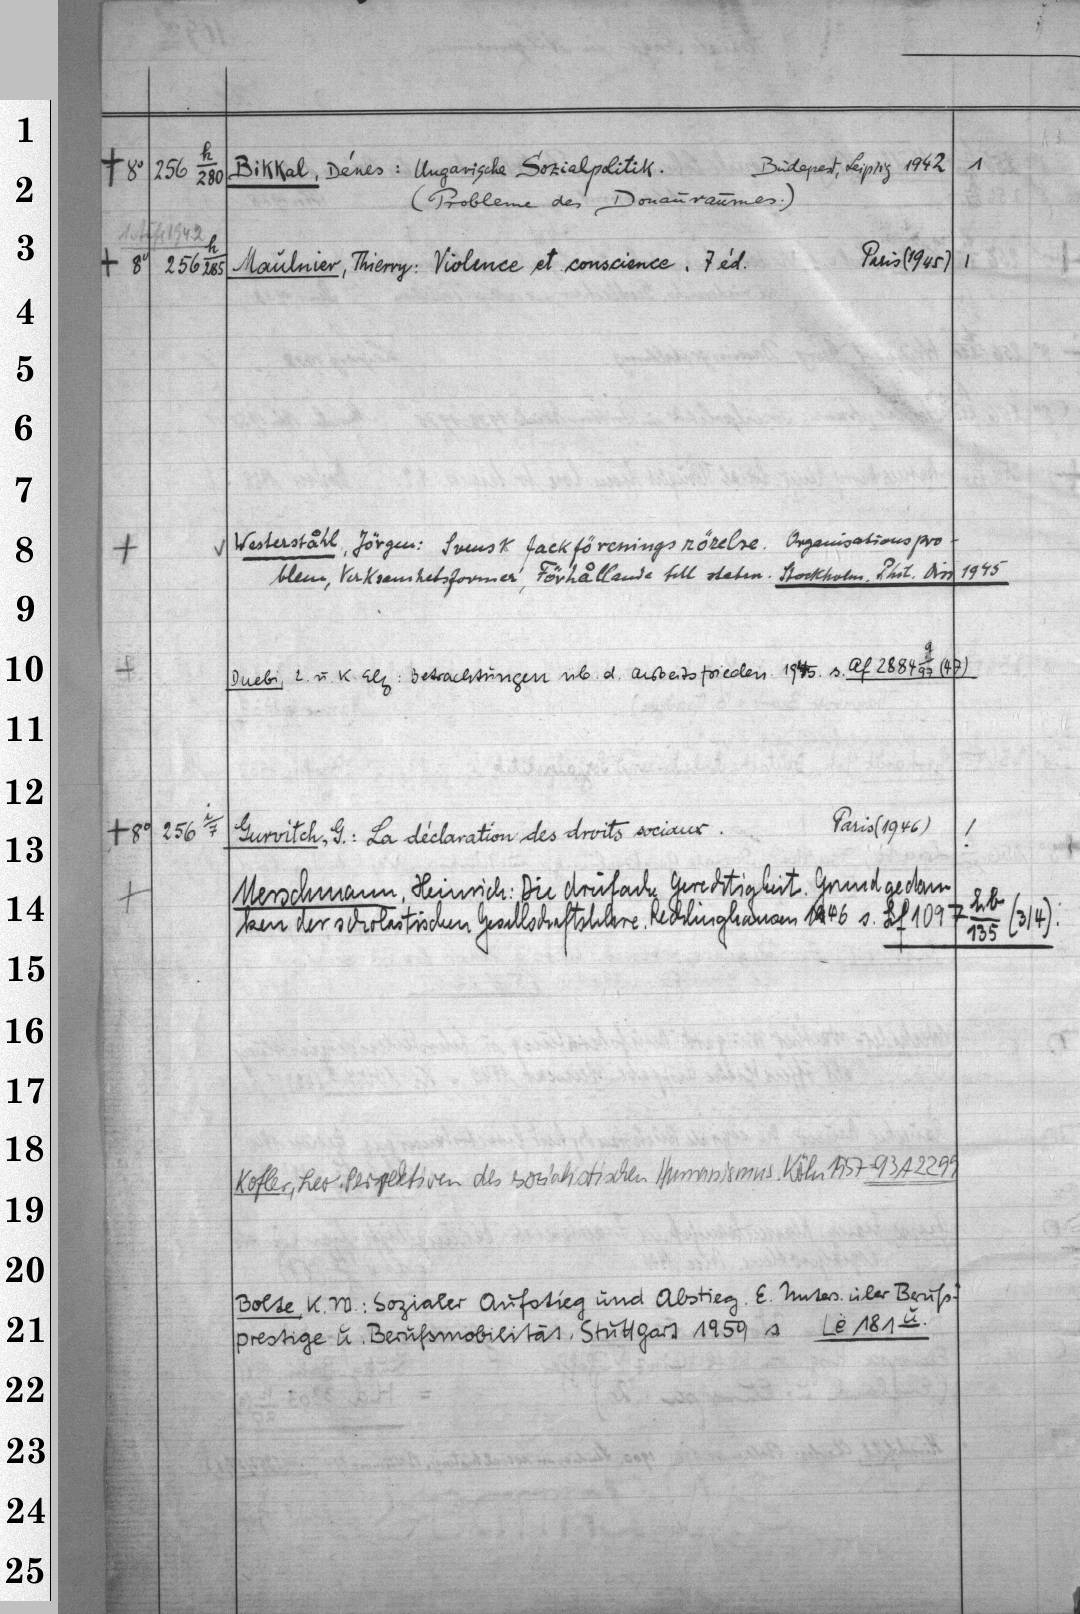 1
2
3
4
5
6
7
8
9
10
11
12
13
14
15
16
17
18
19
20
21
22
23
24
25
+ 8° 256 h/280 Bikkal, Dénes: Ungarische Sozialpolitik. Budapest, Leipzig 1942 1
(Probleme des Donauraumes.)
+ 8° 256 h/285 Maulnier, Thierry: Violence et conscience. 7 éd. Paris (1945) 1
+ √ Westerståhl, Jörgen: Svensk fackföreningsrörelse. Organisationspro-
blem, Verksamhetsformer, Förhållande till staten. Stockholm, Phil. Diss 1945
+ Duebi, L. u K. Ilg: Betrachtungen üb. d. Arbeitsfrieden. 1945. s. Af 2884 g/97 (47)
+ 8° 256 i/7 Gurvitch, G.: La déclaration des droits sociaux. Paris (1946) !
+ Merschmann, Heinrich: Die dreifache Gerechtigkeit. Grundgedan-
ken der scholastischen Gesellschaftslehre. Recklinghausen 1946 s. Lf 1097 hb/135 (3/4).
Kofler, Leo. Perspektiven des sozialistischen Humanismus. Köln 1957 = 93 A 2299
Bolte, K. M.: Sozialer Aufstieg und Abstieg. E. Unters. über Berufs-
prestige u. Berufsmobilität. Stuttgart 1959 s Le 181 u.